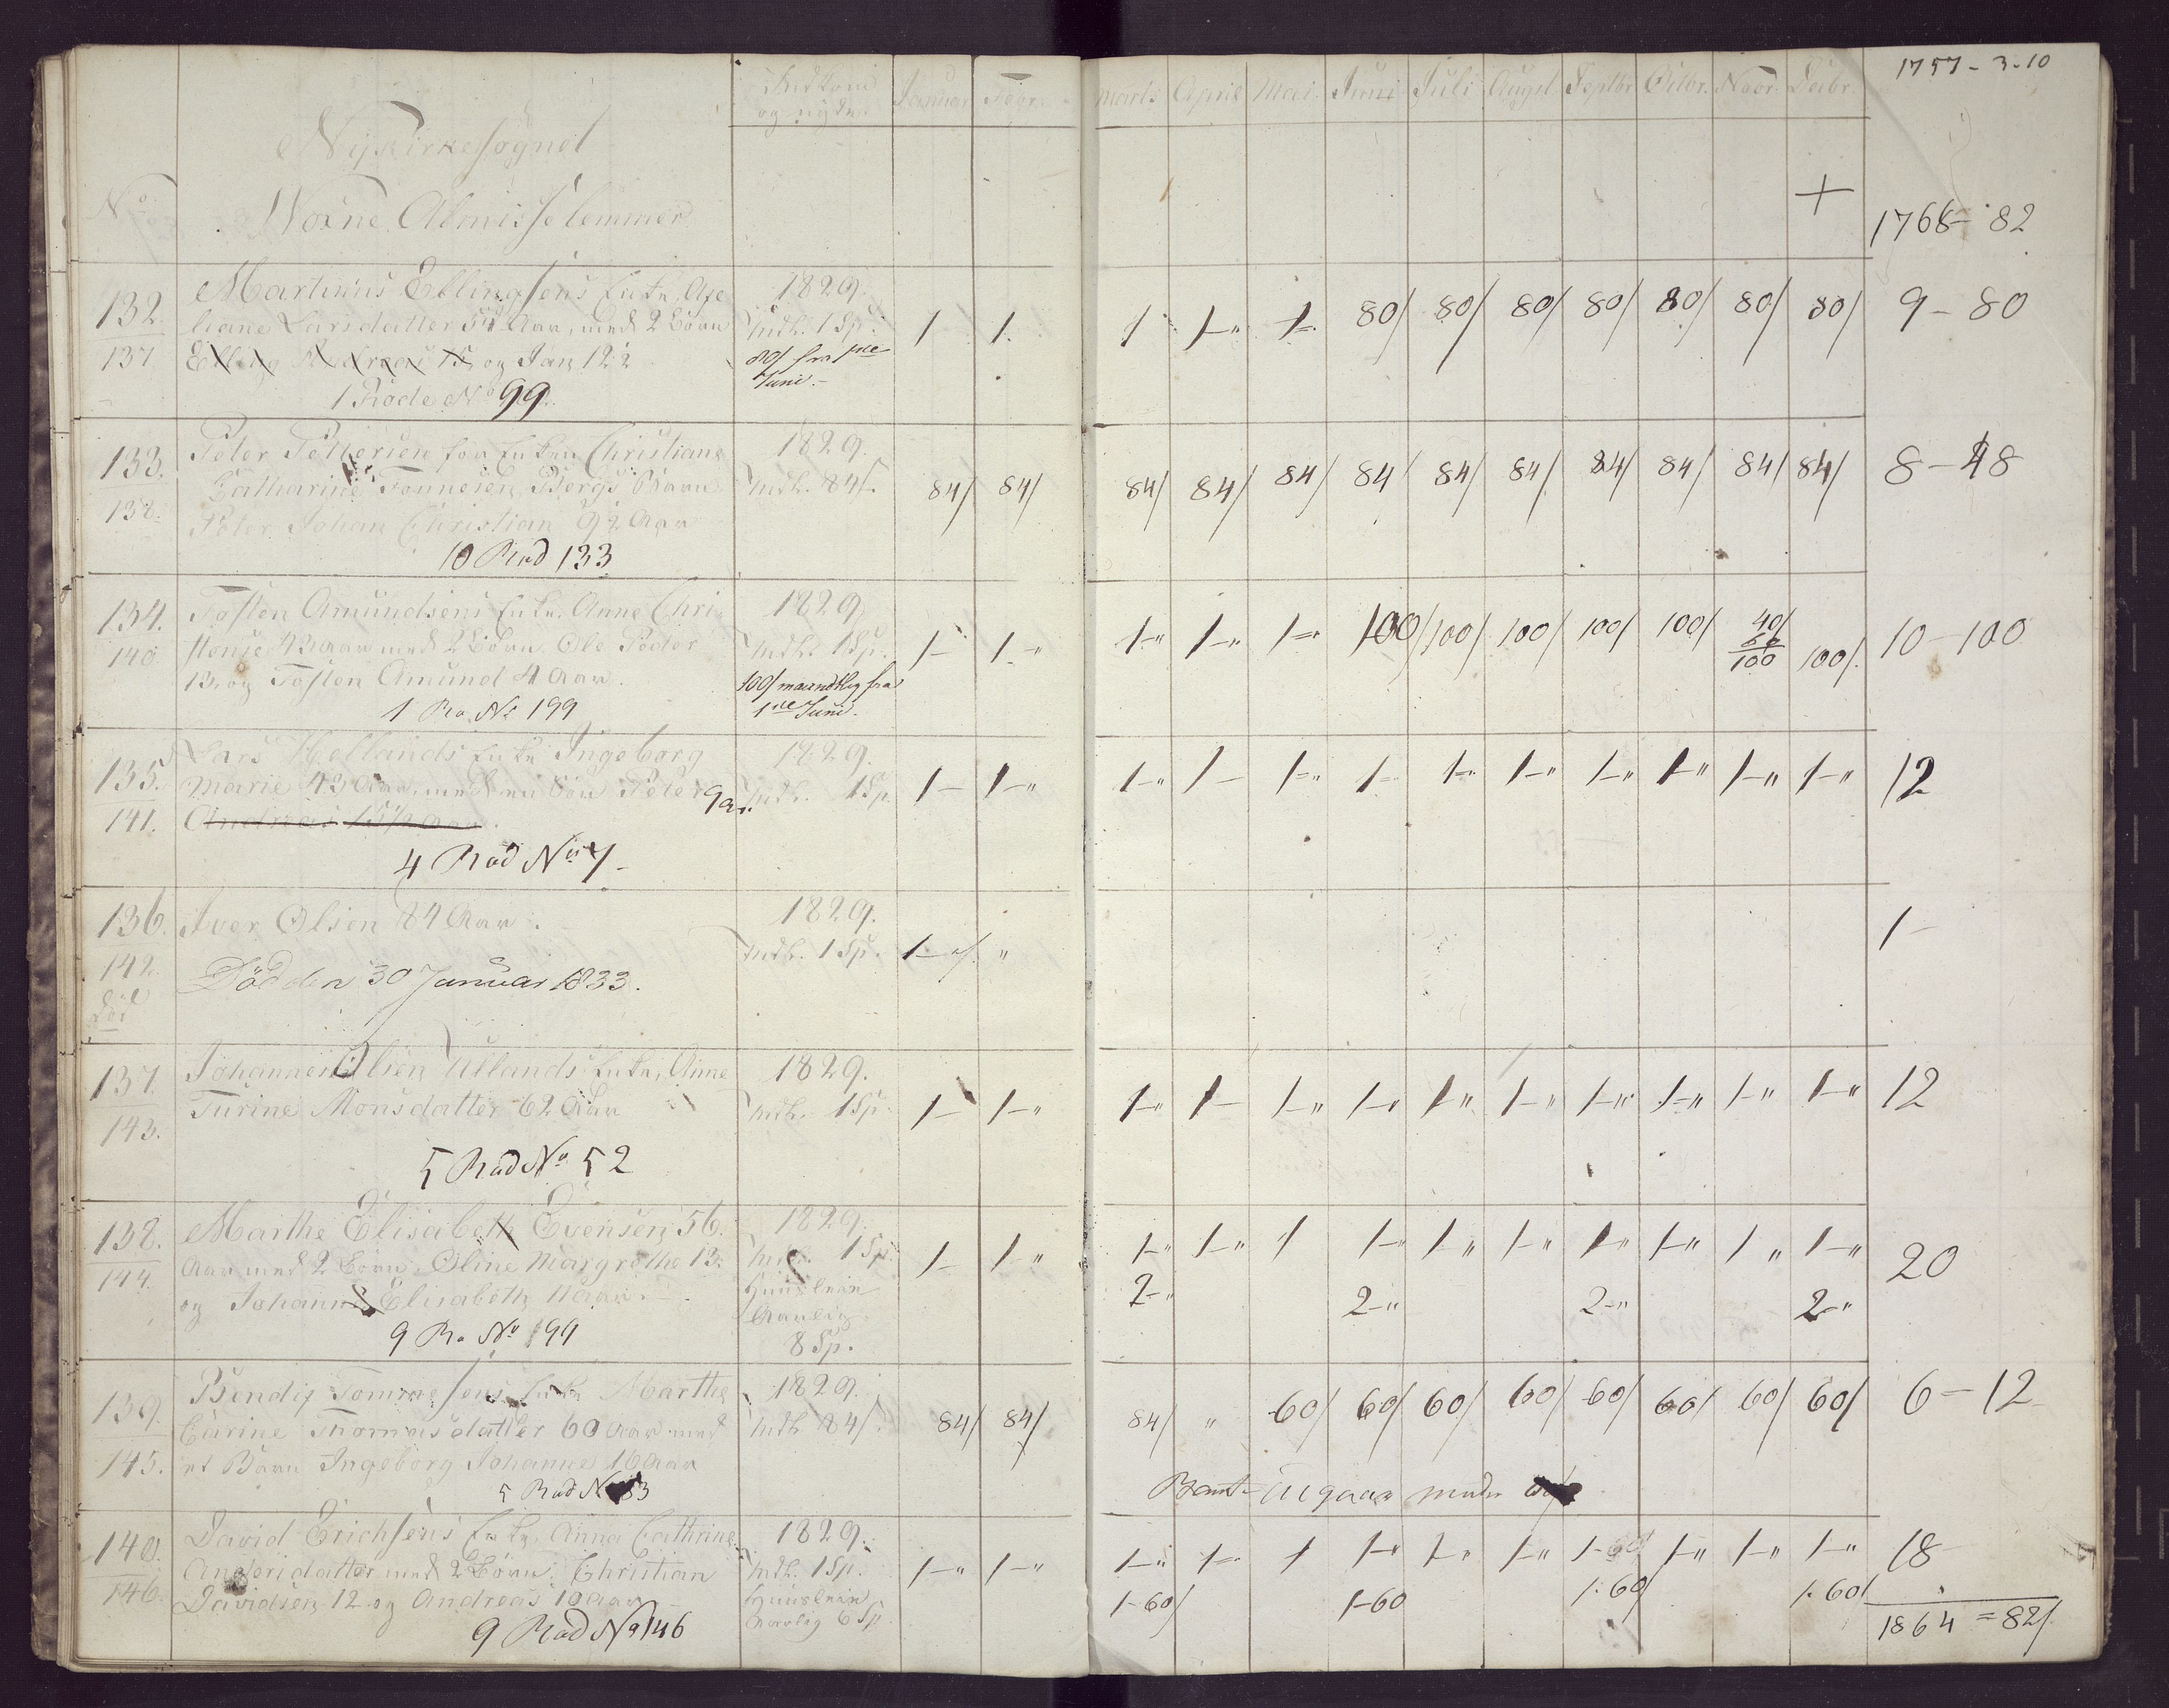 1757-3-10
Indkom og nyder
Januar Febr. Marts April Mai Juni Juli Augst Septbr. Octbr. Novr. Decbr.
Nykirkesognet
No
Voxne Almisselemmer
+
1768-82
132.
137
Martinus Ellingsens Enke,
liane Larsdatter 54 Aar, med 2 Börn
Elling Andreas 15, og Jan 12½
1 Rode No 99.
1829.
Mdl. 1 Sp.
80/ fra 1ste
Juni.-
1- 1. 1 1-" 1-. 80/ 80/ 80/ 80/ 80/ 80/ 80/
9-80
133.
138.
Peter Pettersen fra Enken Christiane
Catharine Tönnesen Bergs Barn
Peter Johan Christian 9½ Aar
10 Rod 133
1829.
Mdl. 84/.
84/ 84/ 84/ 84/ 84/ 84/ 84/ 84/ 84/ 84/ 84/ 84/
8-48
134.
140
Tosten Amundsens Enke Anne Chri
stense 43 Aar med 2 Börn Ole Peder
13, og Tosten Amund 4 Aar.
1 Ro. No 199
1829
Mdl. 1 Sp.
100/ maandtlig fra
1ste Juni.
1- 1.- 1-" 1-" 1-" 100/ 100/ 100/ 100/ 100/ 40/ 100/.
60
100
10-100
135.
141.
Lars Hellands Enke Ingeborg
Marie 43 Aar, med en Sön Peter 9 a.
Andreas 15½ Aar.
4 Rod No 7-
1829.
Mdl. 1 Sp.
1- 1-" 1-" 1- 1-" 1- 1-" 1-" 1-" 1-" 1-" 1-"
12
136.
142.
död
Iver Olsen 84 Aar.
Död den 30 Januar 1833.
1829.
Mdl. 1 Sp.
1- "
1-
137.
143.
Johannes Olsen Ullands Enke, Anne
Turine Monsdatter 62 Aar
5 Rod No 52
1829.
Mdl. 1 Sp.
1- 1-" 1-" 1- 1-" 1-" 1-" 1-" 1-" 1-" 1-" 1-"
12
138.
144.
Marthe Elisabeth Evensen 56.
Aar med 2 Börn, Oline Margrethe 13.
og Johanne Elisabeth 11 Aar.-
9 Ro. No 199
1829.
Mdl. 1 Sp.
Huusleie
Aarlig
8 Sp.
1- 1-" 1-" 1-" 1 1-" 1-" 1-" 1-" 1-" 1" 1-"
2-" 2-" 2-" 2-"
20
139.
145.
Bendix Tommesens Enke Marthe
Carine Thomasdatter 60 Aar med
et Barn Ingeborg Johanne 16 Aar
5 Rod No 53
1829.
Mdl. 84/.
84/ 84/ 84/ " 60/ 60/ 60/ 60/ 60/ 60/ 60/ 60/
6-12
Barnet
140.
146.
David Erichsens Enke, Anna Cathrine
Andersdatter med 2 Börn, Christian
Davidsen 12 og Andreas 10 Aar
9 Rod No 146
1829.
Mdl. 1 Sp.
Huusleie
Aarlig 6 Sp
1-" 1-" 1-" 1-" 1 1-" 1-" 1-" 1-60 1-" 1-" 1-"
1-60/ 1-60 1.60/ 1.60/
18
1864=82/